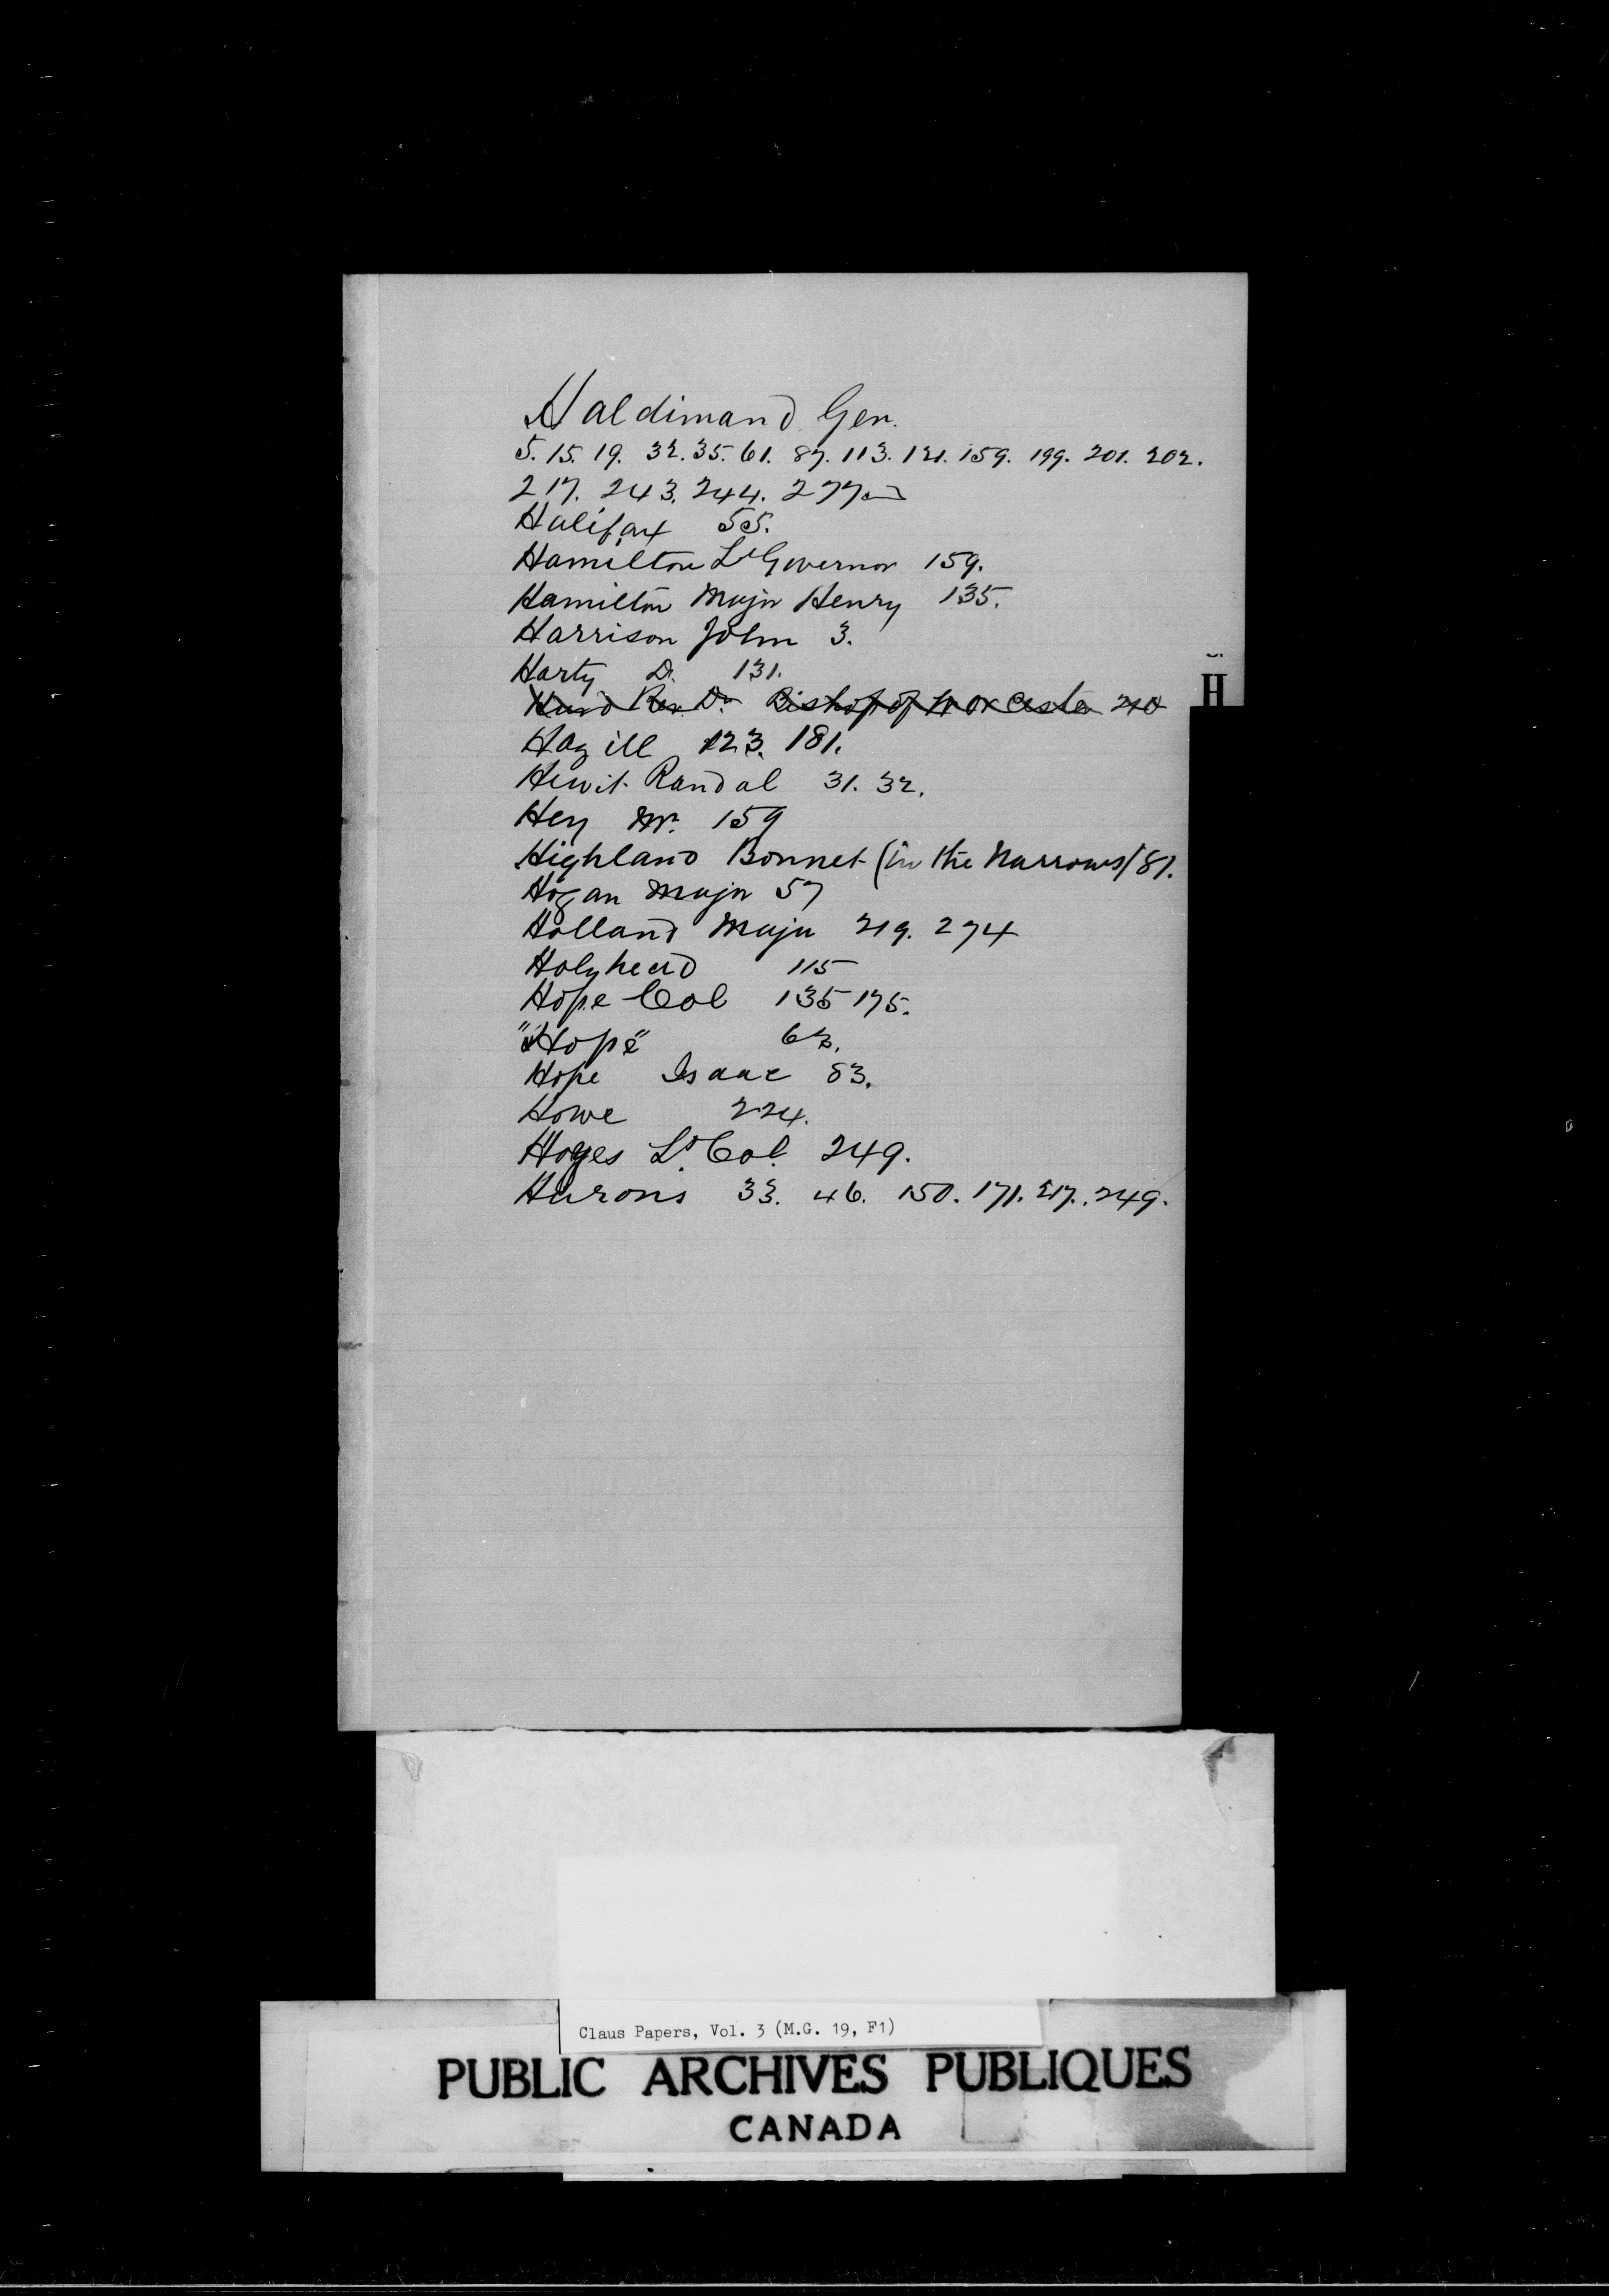 Haldimand Gen.
5. 15. 19. 32. 35. 61. 87. 113. 121. 159. 199. 201. 202.
217. 243. 244. 277
Halifax 55.
Hamilton Lt Governor 159.
Hamilton Major Henry 135.
Harrison John 3.
Harty D. 131.
Hurd Rev. Dr Bishop of Worcester 210
H
Hazill 123. 181.
Hewit Randal 31. 32.
Hey Mr. 159
Highland Bonnet (in the Narrows) 81.
Hogan Major 57
Holland Major 219. 274
Holyhead 115
Hope Col 135 175.
"Hope"
Hope Isaac 83.
Howe 224.
Hoyes Lt. Col. 249.
Hurons 33. 46. 150. 171. 217. 249.
Claus Papers, Vol. 3 (M.G. 19, F1)
PUBLIC ARCHIVES PUBLIQUES
CANADA